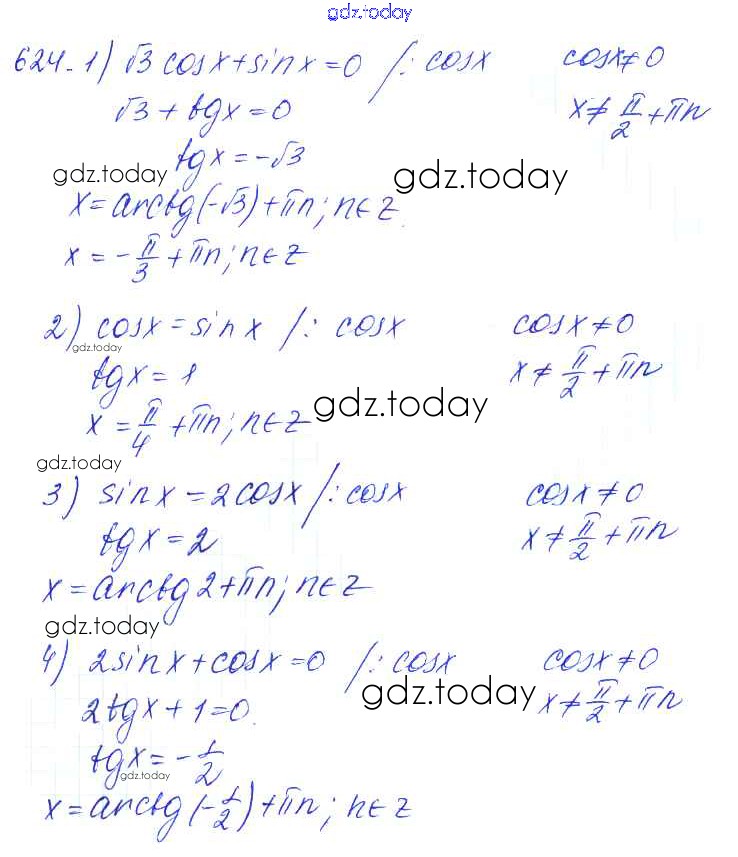 gdz.today
624. 1) √3 cosx + sinx = 0 /: cosx cosx ≠ 0
√3 + tgx = 0 x ≠ π/2 + πn
tgx = -√3
gdz.today gdz.today
x = arctg(-√3) + πn; n∈Z
x = -π/3 + πn; n∈Z
2) cosx = sinx /: cosx cosx ≠ 0
gdz.today
tgx = 1 x ≠ π/2 + πn
x = π/4 + πn; n∈Z gdz.today
gdz.today
3) sinx = 2cosx /: cosx cosx ≠ 0
tgx = 2 x ≠ π/2 + πn
x = arctg2 + πn; n∈Z
gdz.today
4) 2sinx + cosx = 0 /: cosx cosx ≠ 0
2tgx + 1 = 0. gdz.today x ≠ π/2 + πn
tgx = -1/2
gdz.today
x = arctg(-1/2) + πn; n∈Z